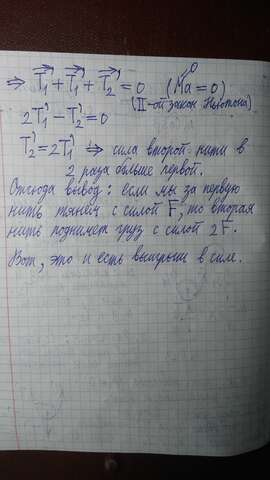 ⇒ T₁' + T₁' + T₂' = 0 (Ma = 0)
0
(II-ой закон Ньютона)
2T₁' - T₂' = 0
T₂' = 2T₁' ⇒ сила второй нити в
2 раза больше первой.
Отсюда вывод: если мы за первую
нить тянем с силой F, то вторая
нить поднимет груз с силой 2F.
Вот, это и есть выигрыш в силе.